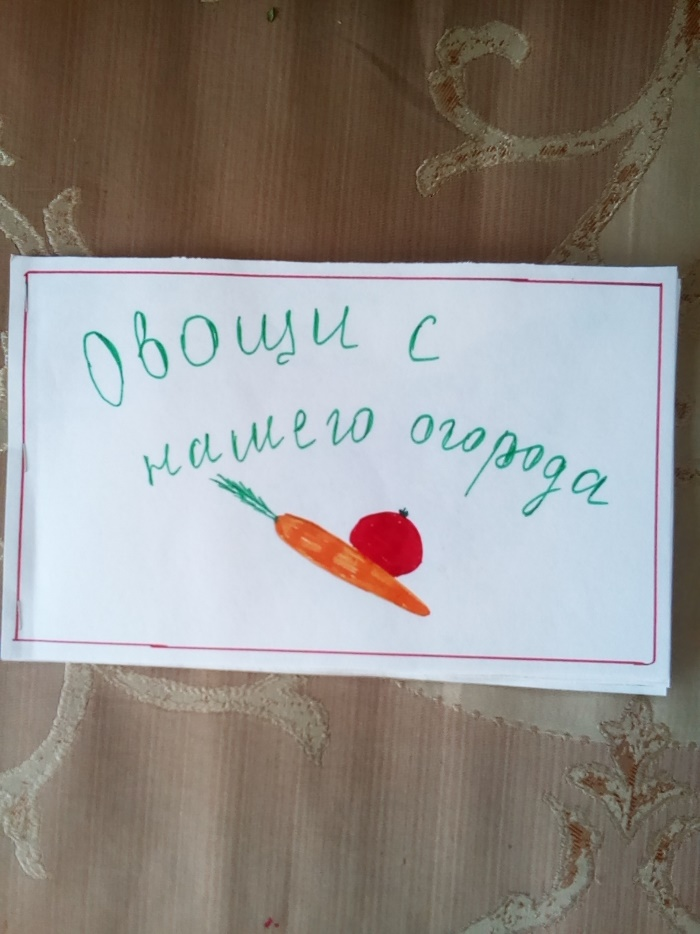 Овощи с
нашего огорода